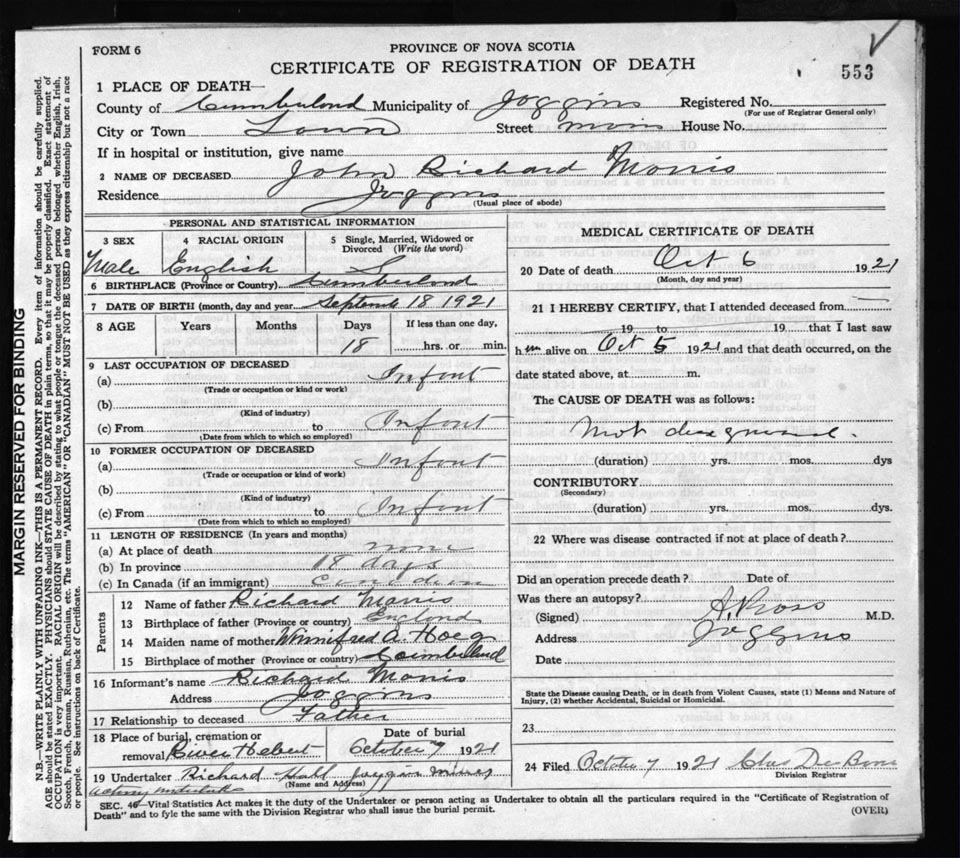 FORM 6
PROVINCE OF NOVA SCOTIA
CERTIFICATE OF REGISTRATION OF DEATH
553
1 PLACE OF DEATH—
County of Cumberland Municipality of Joggins Registered No.
(For use of Registrar General only)
City or Town Town Street Main House No.
If in hospital or institution, give name
2 NAME OF DECEASED John Richard Morris
Residence Joggins
(Usual place of abode)
PERSONAL AND STATISTICAL INFORMATION
3 SEX 4 RACIAL ORIGIN 5 Single, Married, Widowed or Divorced (Write the word)
Male English S
6 BIRTHPLACE (Province or Country) Cumberland
7 DATE OF BIRTH (month, day and year) September 18 1921
8 AGE Years Months Days If less than one day,
18 hrs. or min.
9 LAST OCCUPATION OF DECEASED
(a) Infant
(Trade or occupation or kind of work)
(b)
(Kind of industry)
(c) From to Infant
(Date from which to which so employed)
10 FORMER OCCUPATION OF DECEASED
(a) Infant
(Trade or occupation or kind of work)
(b)
(Kind of industry)
(c) From to Infant
(Date from which to which so employed)
11 LENGTH OF RESIDENCE (In years and months)
(a) At place of death none
(b) In province 18 days
(c) In Canada (if an immigrant) Canadian
Parents
12 Name of father Richard Morris
13 Birthplace of father (Province or country) England
14 Maiden name of mother Winnifred A. Hoeg
15 Birthplace of mother (Province or country) Cumberland
16 Informant's name Richard Morris
Address Joggins
17 Relationship to deceased Father
18 Place of burial, cremation or removal River Hebert
Date of burial October 7 1921
19 Undertaker Richard Hall Joggin Mines
(Name and Address)
acting undertaker
MEDICAL CERTIFICATE OF DEATH
20 Date of death Oct 6 1921
(Month, day and year)
21 I HEREBY CERTIFY, that I attended deceased from
19 to 19 that I last saw
him alive on Oct 5 1921 and that death occurred, on the
date stated above, at m.
The CAUSE OF DEATH was as follows:
Not diagnosed.
(duration) yrs. mos. dys
CONTRIBUTORY
(Secondary)
(duration) yrs. mos. dys.
22 Where was disease contracted if not at place of death?
Did an operation precede death? Date of
Was there an autopsy?
(Signed) Ross M.D.
Address Joggins
Date
State the Disease causing Death, or in death from Violent Causes, state (1) Means and Nature of
Injury, (2) whether Accidental, Suicidal or Homicidal.
23
24 Filed October 7 1921 Chas
Division Registrar
SEC. 46—Vital Statistics Act makes it the duty of the Undertaker or person acting as Undertaker to obtain all the particulars required in the "Certificate of Registration of
Death" and to fyle the same with the Division Registrar who shall issue the burial permit.
(OVER)
MARGIN RESERVED FOR BINDING
N.B.—WRITE PLAINLY WITH UNFADING INK—THIS IS A PERMANENT RECORD. Every item of information should be carefully supplied.
AGE should be stated EXACTLY. PHYSICIANS should STATE CAUSE OF DEATH in plain terms, so that it may be properly classified. Exact statement of
OCCUPATION is very important. RACIAL ORIGIN will be described by stating to what people or tongue the deceased person belonged whether English, Irish,
Scotch, French, German, Russian, Ruthenian, etc. The terms "AMERICAN" OR "CANADIAN" MUST NOT BE USED as they express citizenship but not a race
or people. See instructions on back of Certificate.